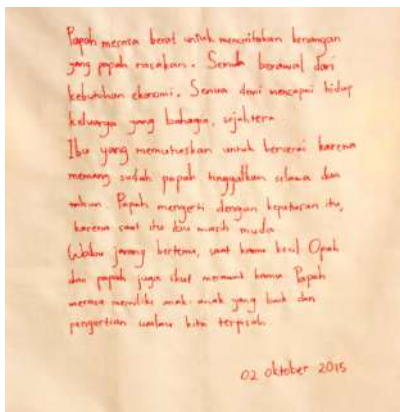 Papah merasa berat untuk menceritakan kenangan
yang papah rasakan. Semua berawal dari
kebutuhan ekonomi. Semua demi mencapai hidup
keluarga yang bahagia, sejahtera.
Ibu yang memutuskan untuk bercerai karena
memang sudah papah tinggalkan selama dua
tahun. Papah mengerti dengan keputusan itu,
karena saat itu ibu masih muda.
Walau jarang bertemu, saat kamu kecil Opah
dan papah juga ikut merawat kamu Papah
merasa memiliki anak-anak yang baik dan
pengertian walau kita terpisah.
02 Oktober 2015